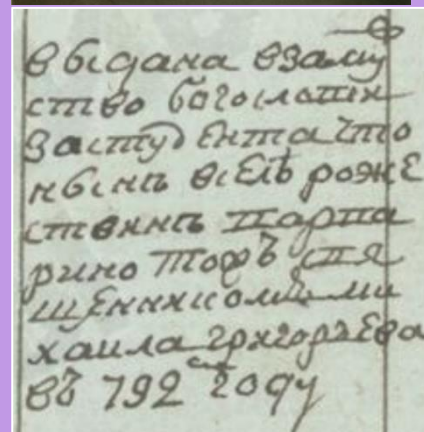 выдана взаму
ство богословіи
за студента что
нынѣ вселѣ роже
ственнѣ парпа
рино тожъ свя
щенникомъ ми
хаила григорьева
въ 792 году